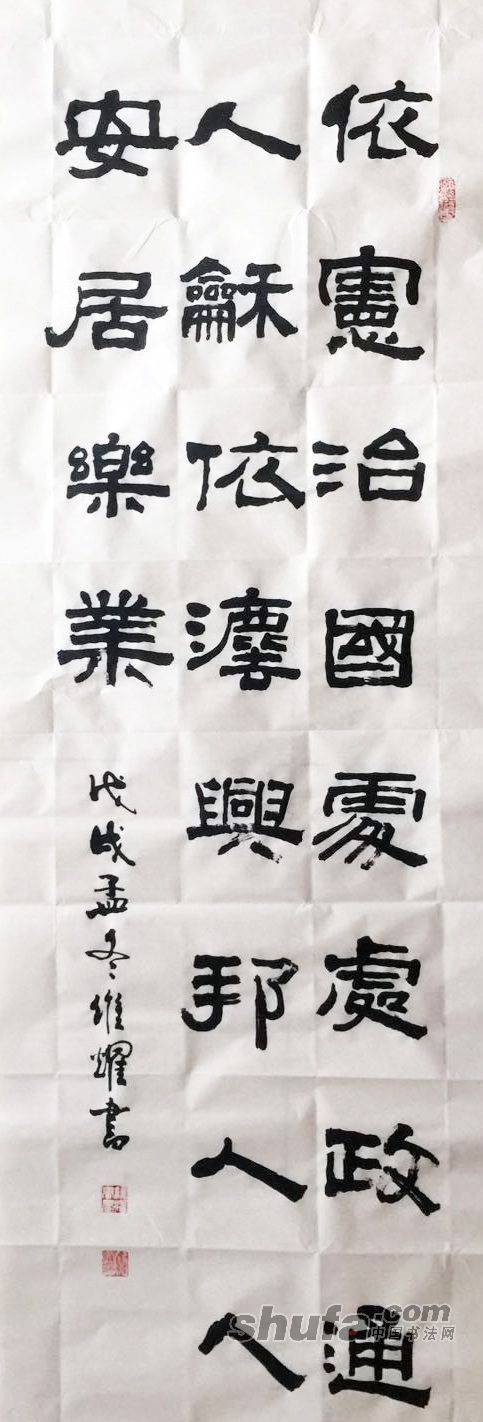 依憲治國處處政通
人龢依灋興邦人人
安居樂業
戊戌孟冬維耀書
shufa.com
中国书法网